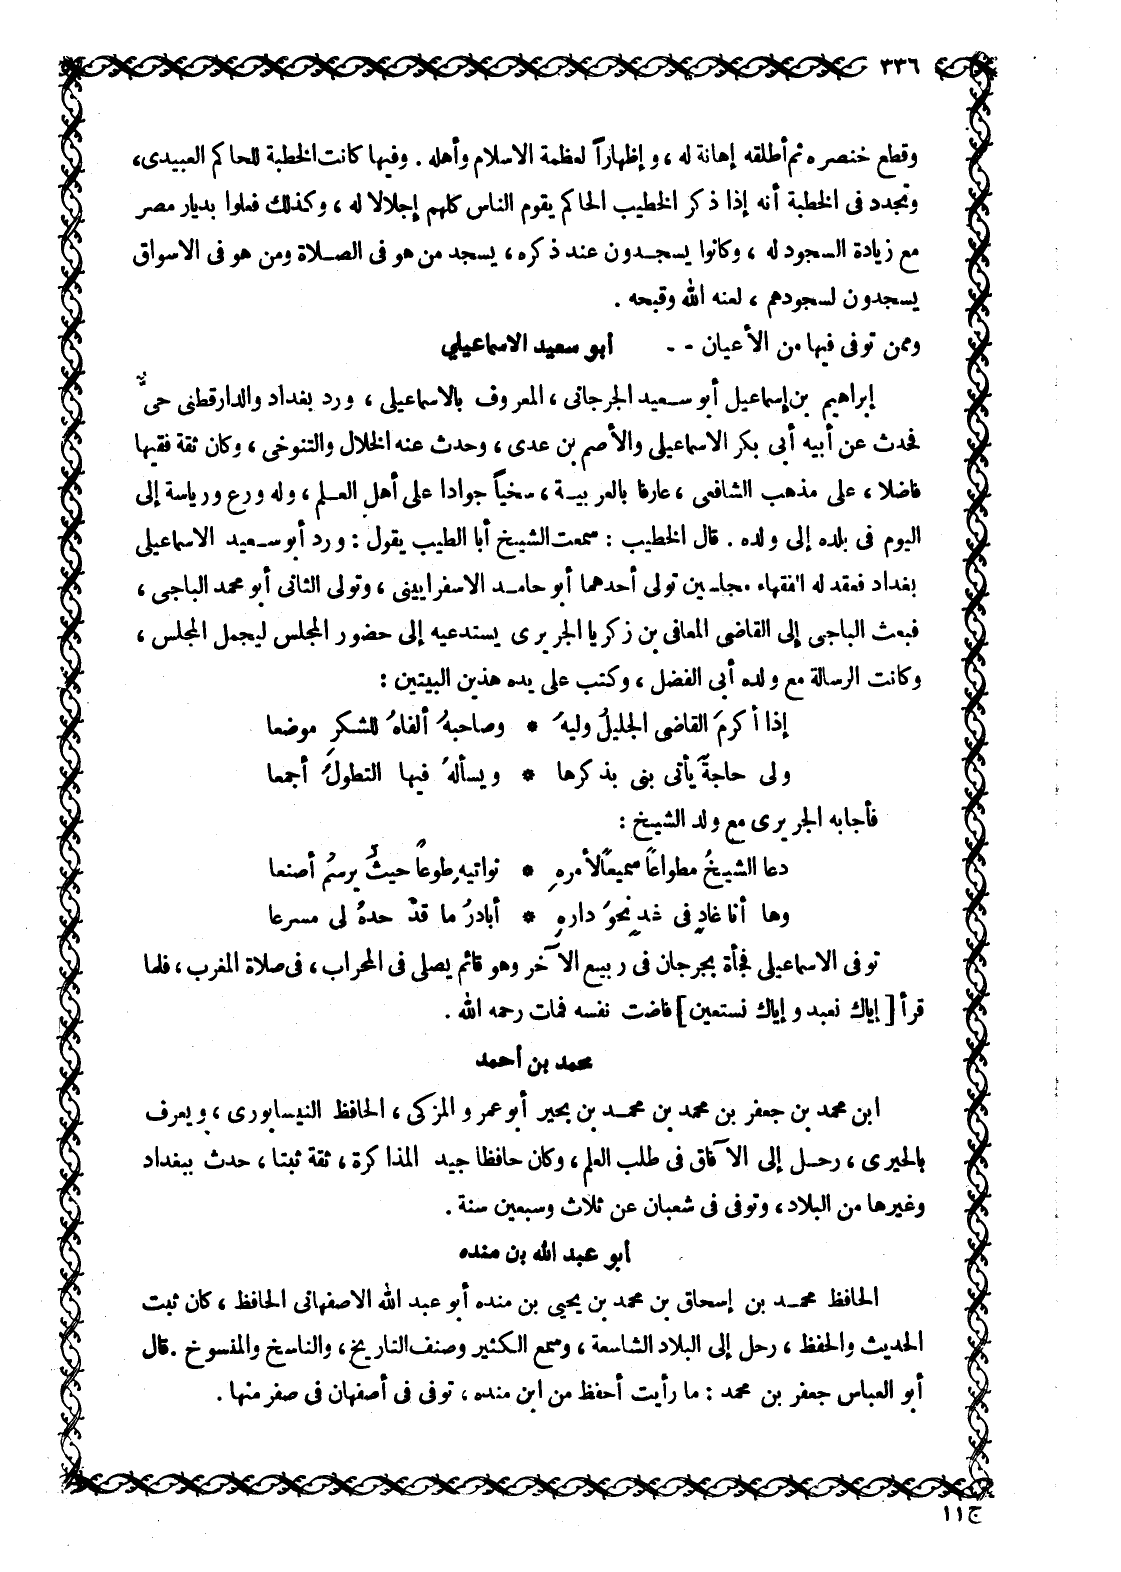 ٣٣٦
وقطع خنصره ثم أطلقه إهانة له ، و إظهاراً لعظمة الاسلام وأهله . وفيها كانت الخطبة للحاكم العبيدى ،
وتجدد فى الخطبة أنه إذا ذكر الخطيب الحاكم يقوم الناس كلهم إجلالا له ، وكذلك فعلوا بديار مصر
مع زيادة السجود له ، وكانوا يسجدون عند ذكره ، يسجد من هو فى الصلاة ومن هو فى الاسواق
يسجدون لسجودهم ، لعنه الله وقبحه .
وممن توفى فيها من الأعيان - - أبو سعيد الاسماعيلي
إبراهيم بن إسماعيل أبو سعيد الجرجانى ، المعروف بالاسماعيلى ، ورد بغداد والدارقطنى حى
فحدث عن أبيه أبى بكر الاسماعيلى والأصم بن عدى ، وحدث عنه الخلال والتنوخى ، وكان ثقة فقيها
فاضلا ، على مذهب الشافعى ، عارفا بالعربية ، سخياً جوادا على أهل العلم ، وله ورع ورياسة إلى
اليوم فى بلده إلى ولده . قال الخطيب : سمعت الشيخ أبا الطيب يقول : ورد أبو سعيد الاسماعيلى
بغداد فعقد له الفقهاء مجلسين تولى أحدهما أبو حامد الاسفرايينى ، وتولى الثانى أبو محمد الباجى ،
فبعث الباجى إلى القاضى المعافى بن زكريا الجريرى يستدعيه إلى حضور المجلس ليجمل المجلس ،
وكانت الرسالة مع ولده أبى الفضل ، وكتب على يده هذين البيتين :
إذا أكرمَ القاضى الجليلُ وليهُ * وصاحبهُ ألفاهُ للشكرِ موضعا
ولى حاجةٌ يأتى بنى بذكرها * ويسألهُ فيها التطولَ أجمعا
فأجابه الجريرى مع ولد الشيخ :
دعا الشيخُ مطواعاً سميعاً لأمرهِ * نواتيهِ طوعاً حيثُ يرسمُ أصنعا
وها أنا غادٍ فى غدٍ نحوَ دارهِ * أبادرُ ما قدْ حدهُ لى مسرعا
توفى الاسماعيلى فجأة بجرجان فى ربيع الآخر وهو قائم يصلى فى المحراب ، فى صلاة المغرب ، فلما
قرأ [ إياك نعبد و إياك نستعين ] فاضت نفسه فمات رحمه الله .
محمد بن أحمد
ابن محمد بن جعفر بن محمد بن محمد بن بحير أبو عمرو المزكى ، الحافظ النيسابورى ، ويعرف
بالحيرى ، رحل إلى الآفاق فى طلب العلم ، وكان حافظا جيد المذاكرة ، ثقة ثبتا ، حدث ببغداد
وغيرها من البلاد ، وتوفى فى شعبان عن ثلاث وسبعين سنة .
أبو عبد الله بن منده
الحافظ محمد بن إسحاق بن محمد بن يحيى بن منده أبو عبد الله الاصفهانى الحافظ ، كان ثبت
الحديث والحفظ ، رحل إلى البلاد الشاسعة ، وسمع الكثير وصنف التاريخ ، والناسخ والمنسوخ . قال
أبو العباس جعفر بن محمد : ما رأيت أحفظ من ابن منده ، توفى فى أصفهان فى صفر منها .
ج ١١